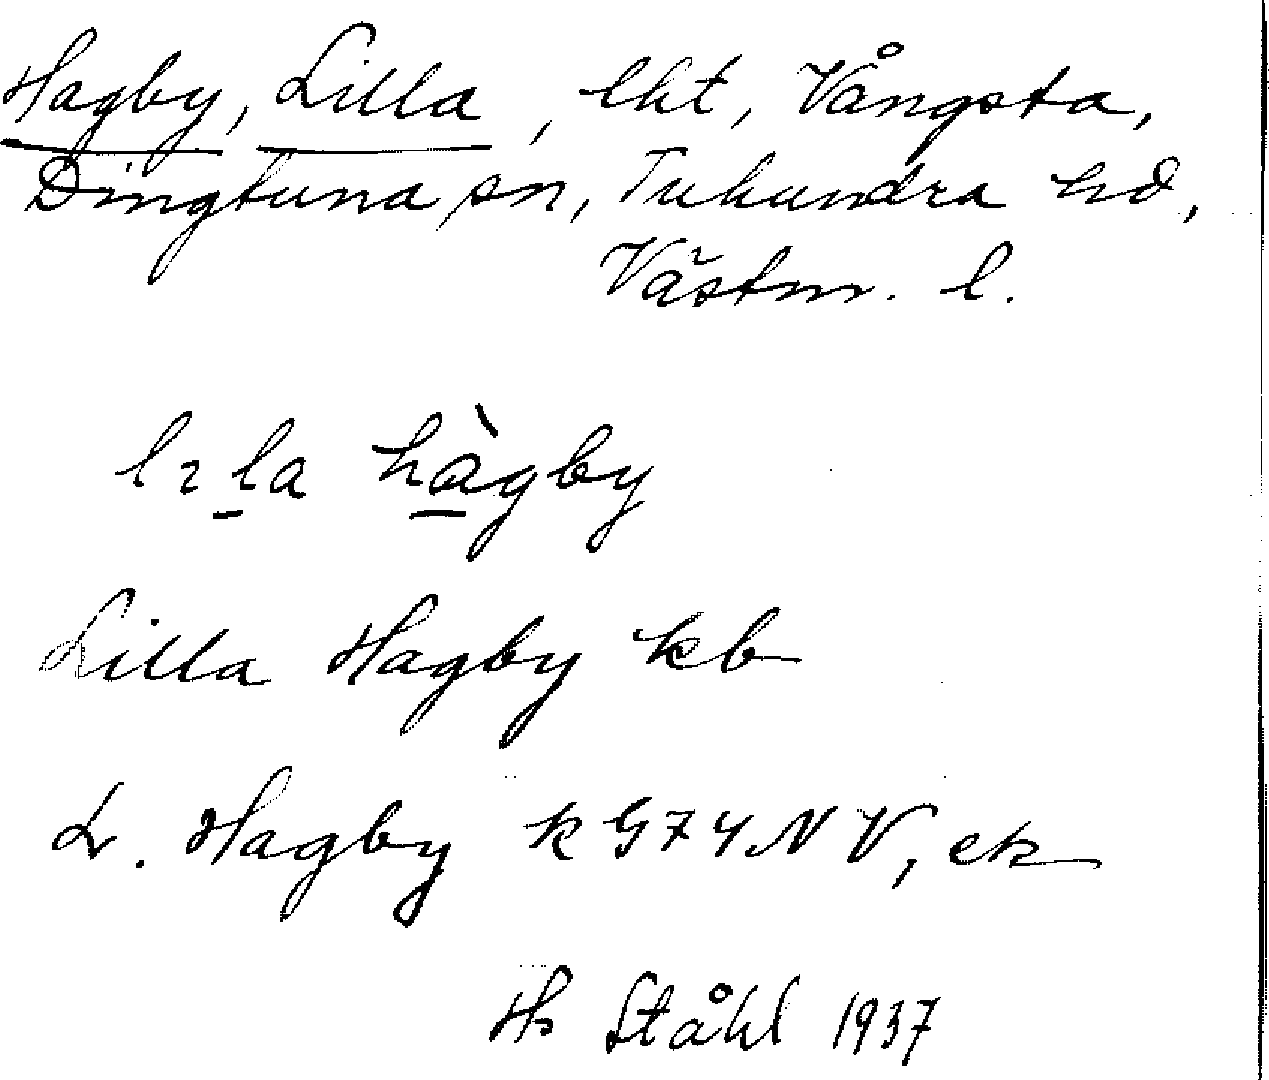 Hagby, Lilla, lht, Vångsta,
Dingtuna sn, Tuhundra hd,
Västm. l.
lıla hàgby
Lilla Hagby kb
L. Hagby k G74NV, ek
Hs Ståhl 1937